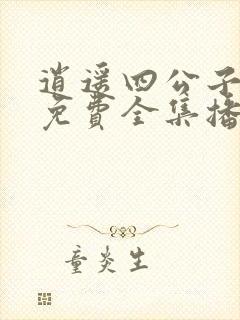 逍遥四公子
免費全集播
童炎生